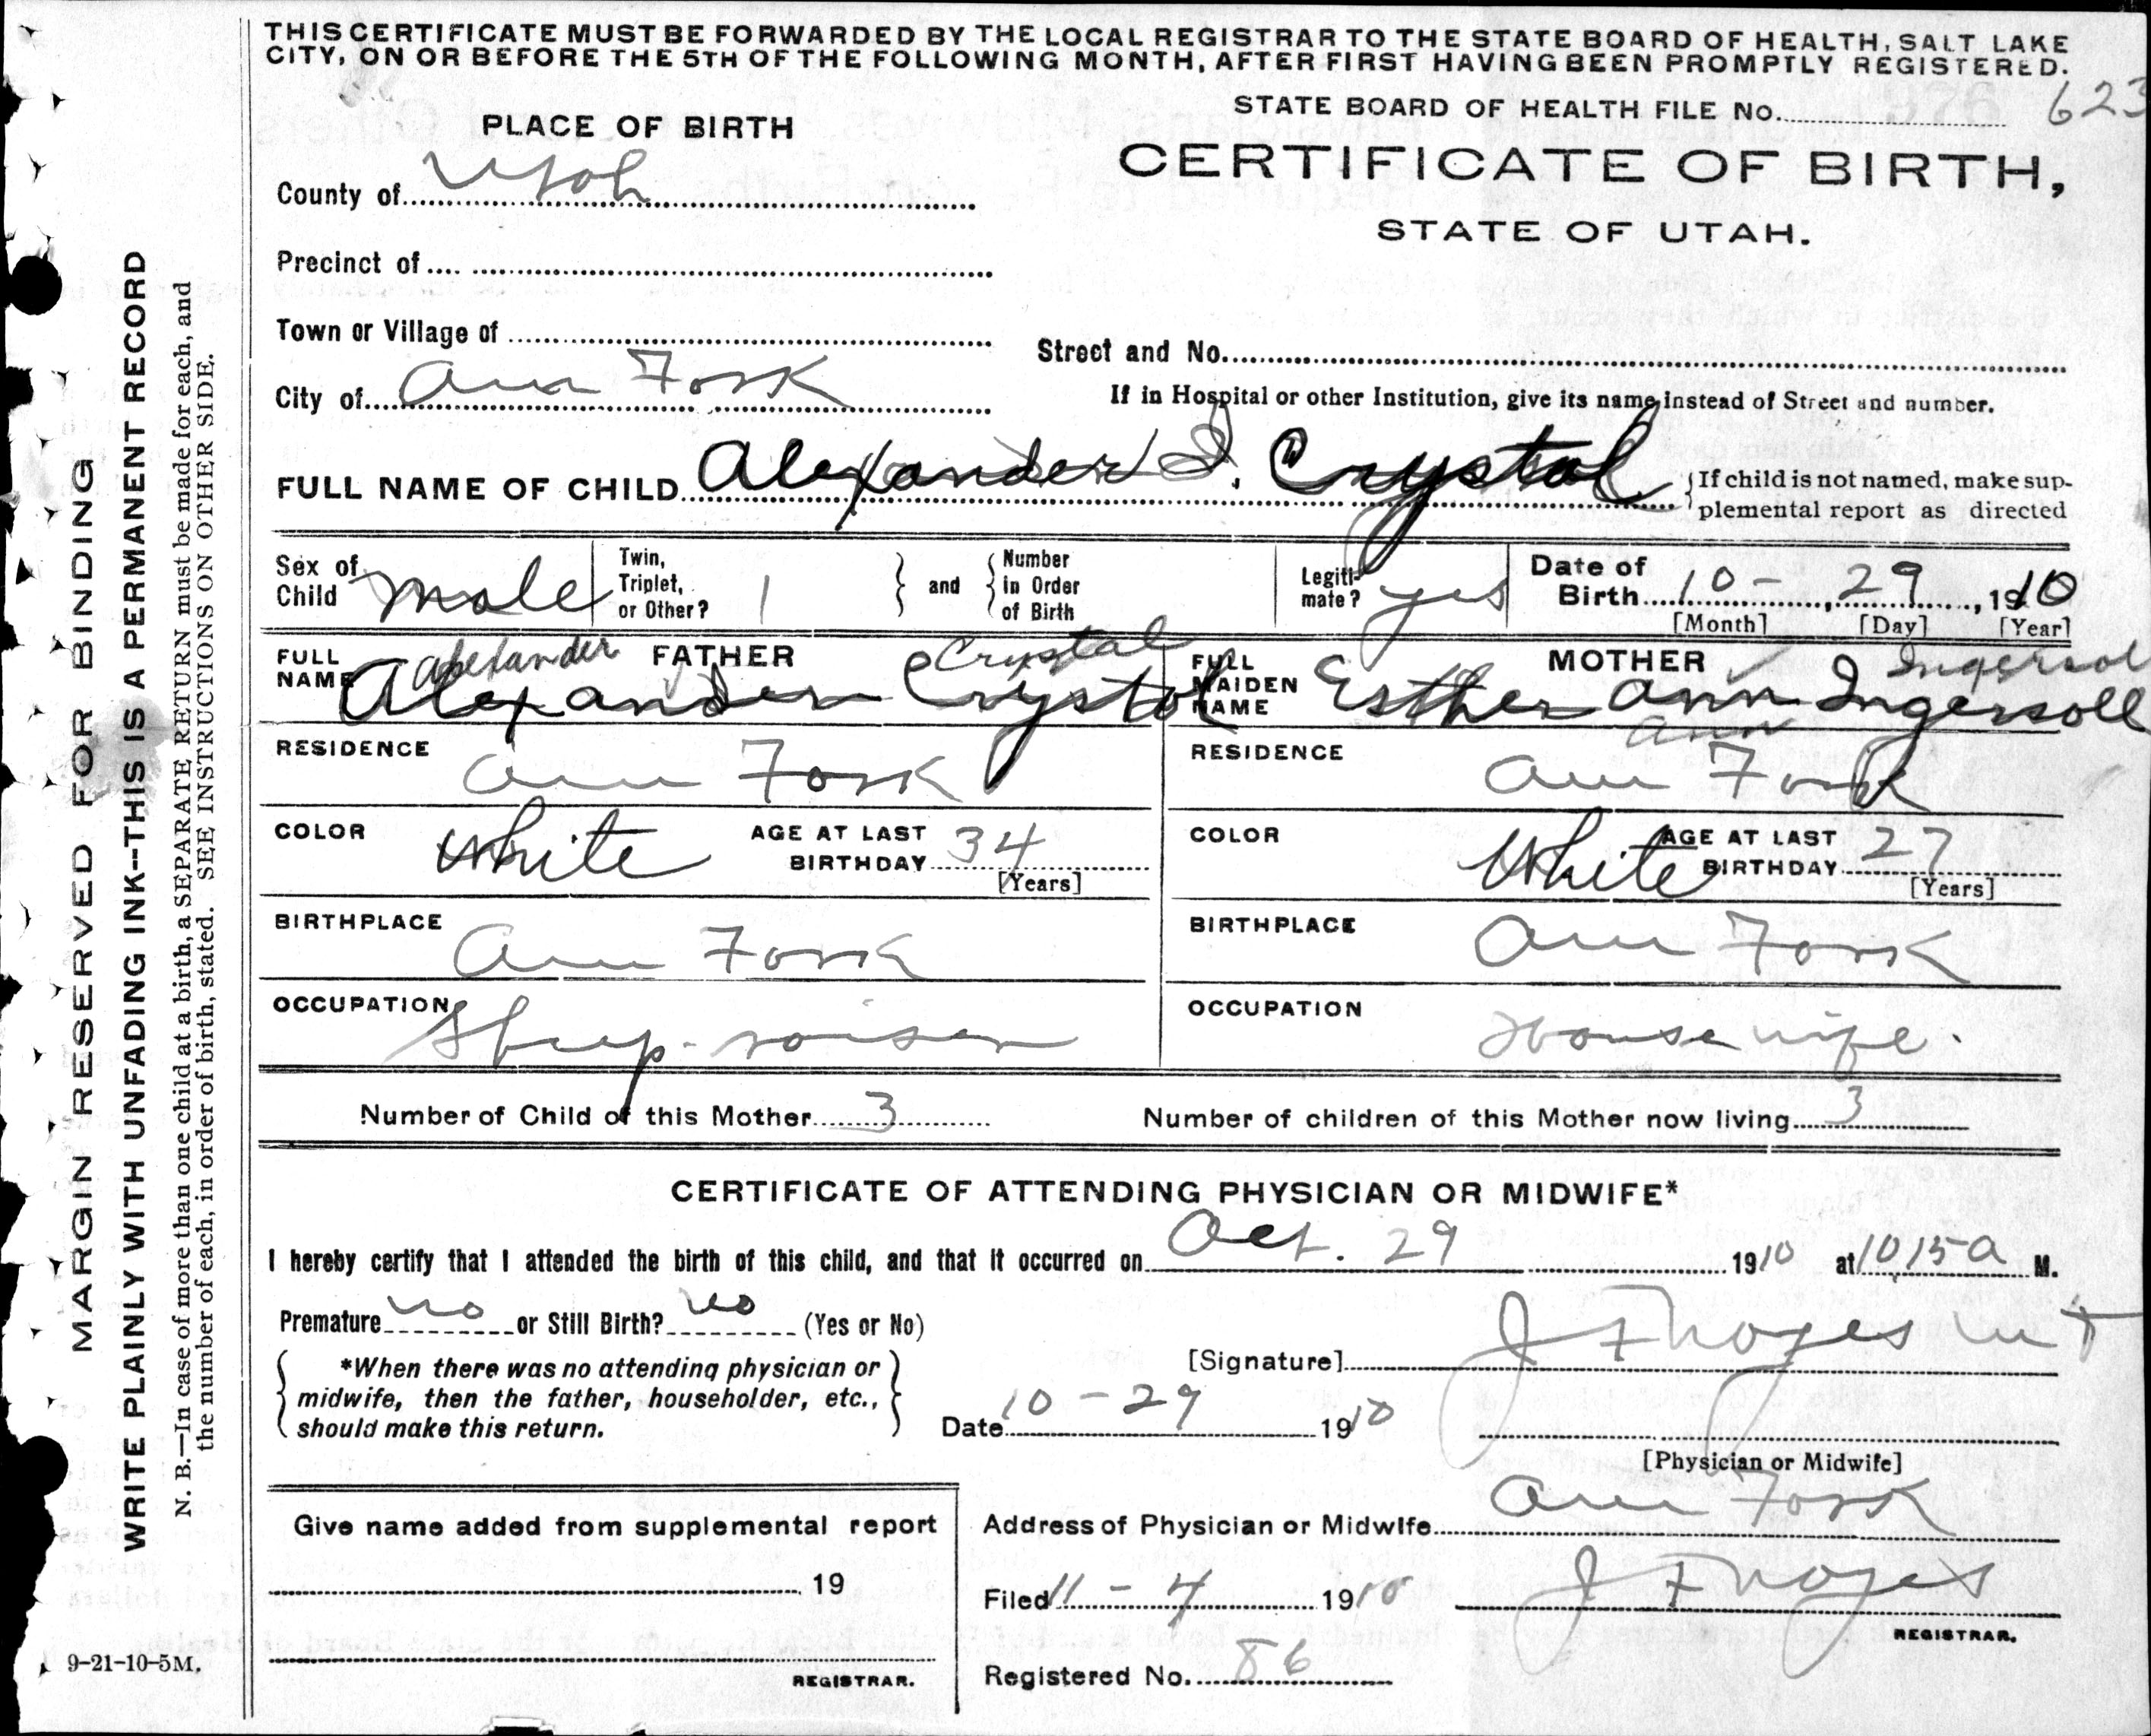 THIS CERTIFICATE MUST BE FORWARDED BY THE LOCAL REGISTRAR TO THE STATE BOARD OF HEALTH, SALT LAKE
CITY, ON OR BEFORE THE 5TH OF THE FOLLOWING MONTH, AFTER FIRST HAVING BEEN PROMPTLY REGISTERED.
STATE BOARD OF HEALTH FILE No. 623
PLACE OF BIRTH
CERTIFICATE OF BIRTH,
STATE OF UTAH.
County of Utah
Precinct of
Town or Village of
Street and No.
City of Am Fork
If in Hospital or other Institution, give its name instead of Street and number.
FULL NAME OF CHILD Alexander I. Crystal
If child is not named, make sup-
plemental report as directed
Sex of Child male
Twin, Triplet, or Other? 1
and
Number in Order of Birth
Legiti-mate? yes
Date of Birth 10 - 29, 1910
[Month] [Day] [Year]
FATHER
FULL NAME Alexander Crystal
Alexander Crystal
RESIDENCE Am Fork
COLOR White
AGE AT LAST BIRTHDAY 34
[Years]
BIRTHPLACE Am Fork
OCCUPATION Sheep-raiser
MOTHER
FULL MAIDEN NAME Esther Ann Ingersoll
Ingersol
Ann
RESIDENCE Am Fork
COLOR White
AGE AT LAST BIRTHDAY 27
[Years]
BIRTHPLACE Am Fork
OCCUPATION Housewife.
Number of Child of this Mother 3
Number of children of this Mother now living 3
CERTIFICATE OF ATTENDING PHYSICIAN OR MIDWIFE*
I hereby certify that I attended the birth of this child, and that it occurred on Oct. 29 1910 at 10,15 a M.
Premature no or Still Birth? no (Yes or No)
*When there was no attending physician or
midwife, then the father, householder, etc.,
should make this return.
[Signature] J F Noyes
Date 10 - 29 1910
[Physician or Midwife]
Address of Physician or Midwife Am Fork
Give name added from supplemental report
19
REGISTRAR.
Filed 11 - 4 1910 J F Noyes
REGISTRAR.
Registered No. 86
9-21-10-5M.
MARGIN RESERVED FOR BINDING
WRITE PLAINLY WITH UNFADING INK--THIS IS A PERMANENT RECORD
N. B.—In case of more than one child at a birth, a SEPARATE RETURN must be made for each, and
the number of each, in order of birth, stated. SEE INSTRUCTIONS ON OTHER SIDE.